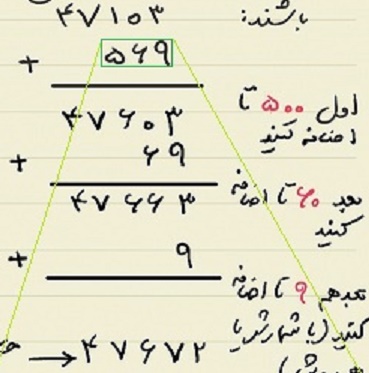 باشند:
۴۷۱۰۳
+ ۵۶۹
اول ۵۰۰ تا
اضافه کنید
۴۷۶۰۳
+ ۶۹
بعد ۶۰ تا اضافه
کنید
۴۷۶۶۳
+ ۹
بعدهم ۹ تا اضافه
کنید (با شمارش یا
→ ۴۷۶۷۲